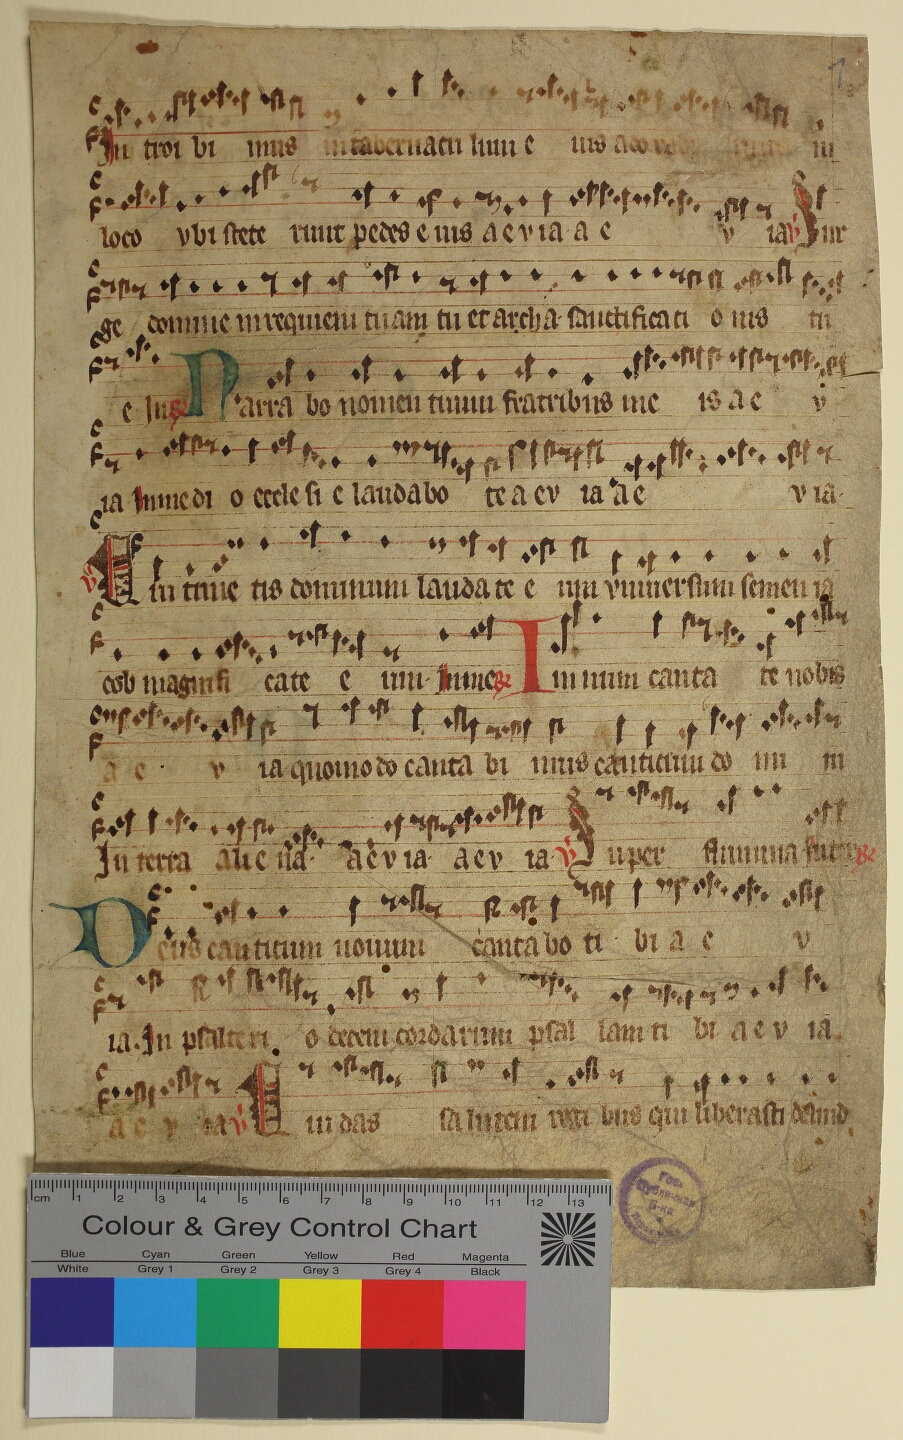 1
In troi bi mus in tabernacu lum e ius ado in
loco vbi stete runt pedes e ius a e v ia a e v ia ℣ Sur
ge domine in requiem tuam tu et archa sanctificati o nis tu
e In ℟ Narra bo nomen tuum fratribus me is a e v
ia In medi o eccle si e laudabo te a ev ia a e v ia
℣ Qui time tis dominum lauda te e um vniuersum semen ia
cob magnifi cate e um In me ℟ Imnum canta te nobis
a e v ia quomodo canta bi mus canticum do mi ni
In terra alie na a e v ia a e v ia ℣ Super flumina ℟
Deus canticum nouum canta bo ti bi a e v
ia In psalteri o decem cordarum psal lam ti bi a e v ia
a e v ia ℣ Qui das salutem regi bus qui liberasti dauid
cm 1 2 3 4 5 6 7 8 9 10 11 12 13
Colour & Grey Control Chart
Blue Cyan Green Yellow Red Magenta
White Grey 1 Grey 2 Grey 3 Grey 4 Black